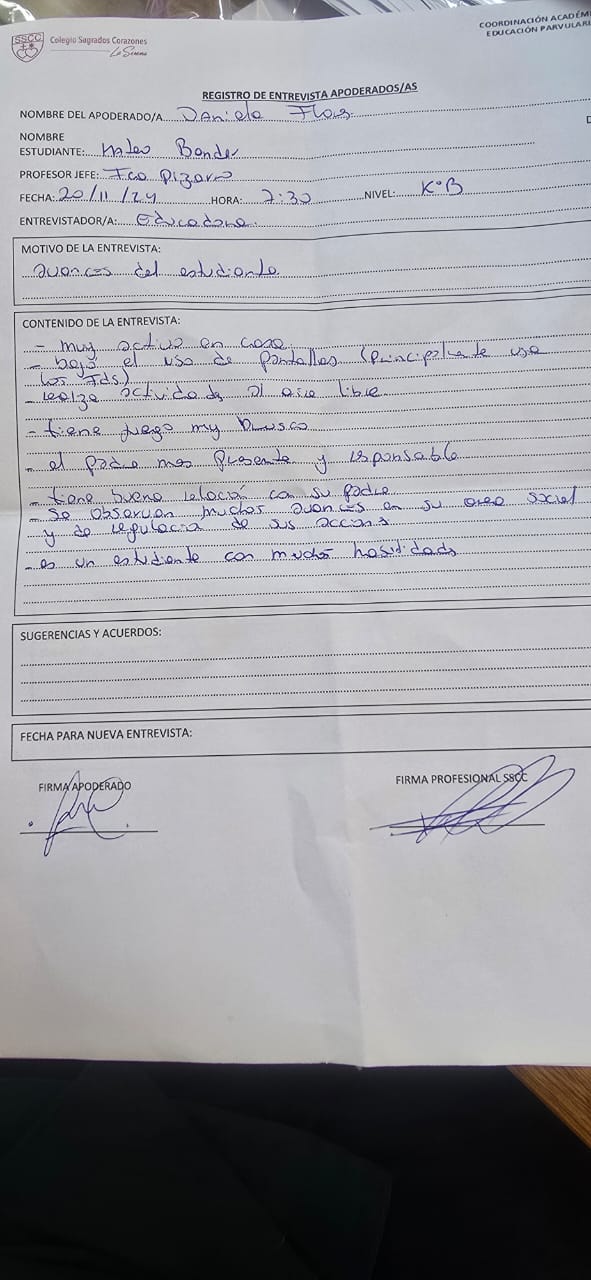 SSCC
Colegio Sagrados Corazones
La Serena
COORDINACIÓN ACADÉM
EDUCACIÓN PARVULARI
REGISTRO DE ENTREVISTA APODERADOS/AS
NOMBRE DEL APODERADO/A Daniela Flores
NOMBRE
ESTUDIANTE: Mateo Bonder
PROFESOR JEFE: Fca Pizarro
FECHA: 20/11/24 HORA: 7:30 NIVEL: K°B
ENTREVISTADOR/A: Educadora.
MOTIVO DE LA ENTREVISTA:
avances del estudiante
CONTENIDO DE LA ENTREVISTA:
- muy activo en casa
- bajó el uso de pantallas (principalmente usa
los Fds)
- realiza actividades al aire libre
- tiene juego muy brusco
- el padre mas presente y responsable
- tiene buena relación con su padre
- Se observan muchos avances en su area social
y de regulación de sus acciones
- es un estudiante con muchas habilidades
SUGERENCIAS Y ACUERDOS:
FECHA PARA NUEVA ENTREVISTA:
FIRMA APODERADO
FIRMA PROFESIONAL SSCC